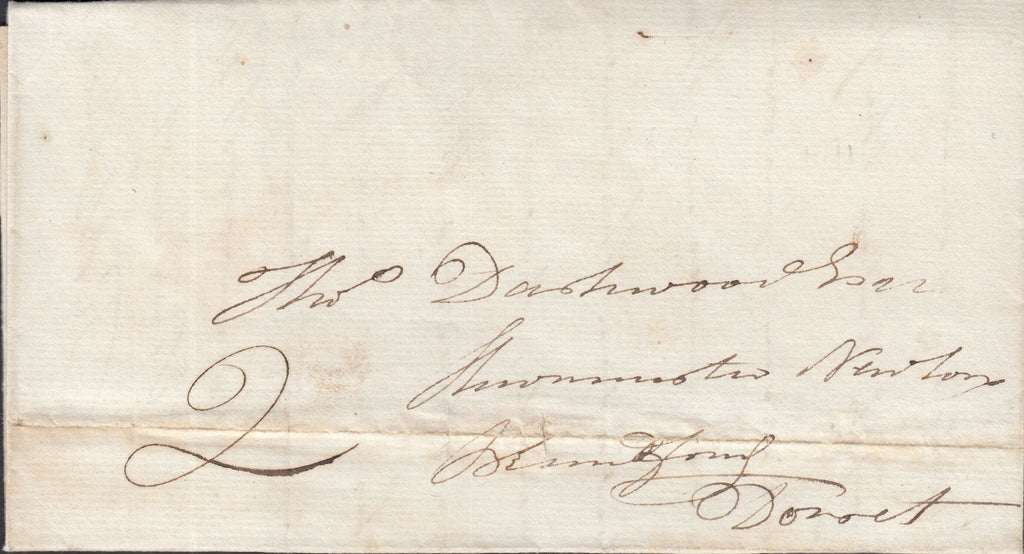 Thos Dashwood Esqr
Sturminster Newton
2
Blandford
Dorset